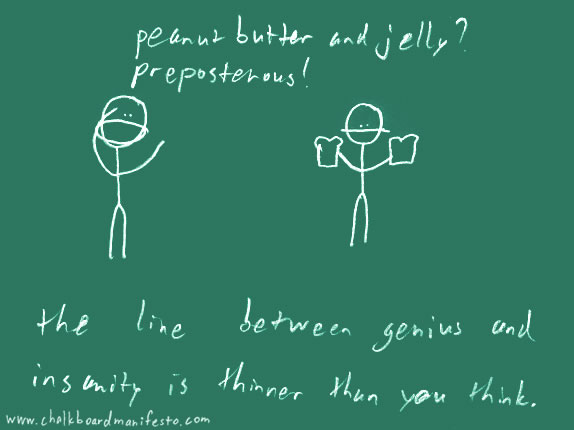 peanut butter and jelly?
preposterous!
the line between genius and
insanity is thinner than you think.
www.chalkboardmanifesto.com